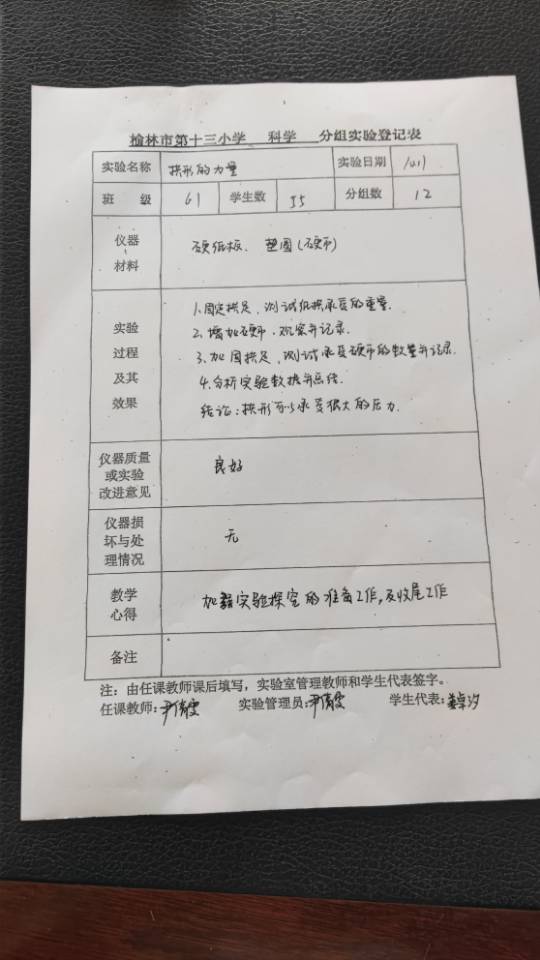 榆林市第十三小学 科学 分组实验登记表
实验名称 拱形的力量 实验日期
班 级 61 学生数 55 分组数 12
仪器材料 硬纸板、垫圈(硬币)
实验过程及其效果
1.固定拱足,测试纸拱承受的重量.
2.增加硬币,观察并记录.
3.加固拱足,测试承受硬币的数量并记录.
4.分析实验数据并总结.
结论:拱形可以承受很大的压力.
仪器质量或实验改进意见 良好
仪器损坏与处理情况 无
教学心得 加强实验探究的准备工作,及收尾工作
备注
注:由任课教师课后填写,实验室管理教师和学生代表签字。
任课教师: 实验管理员: 学生代表: